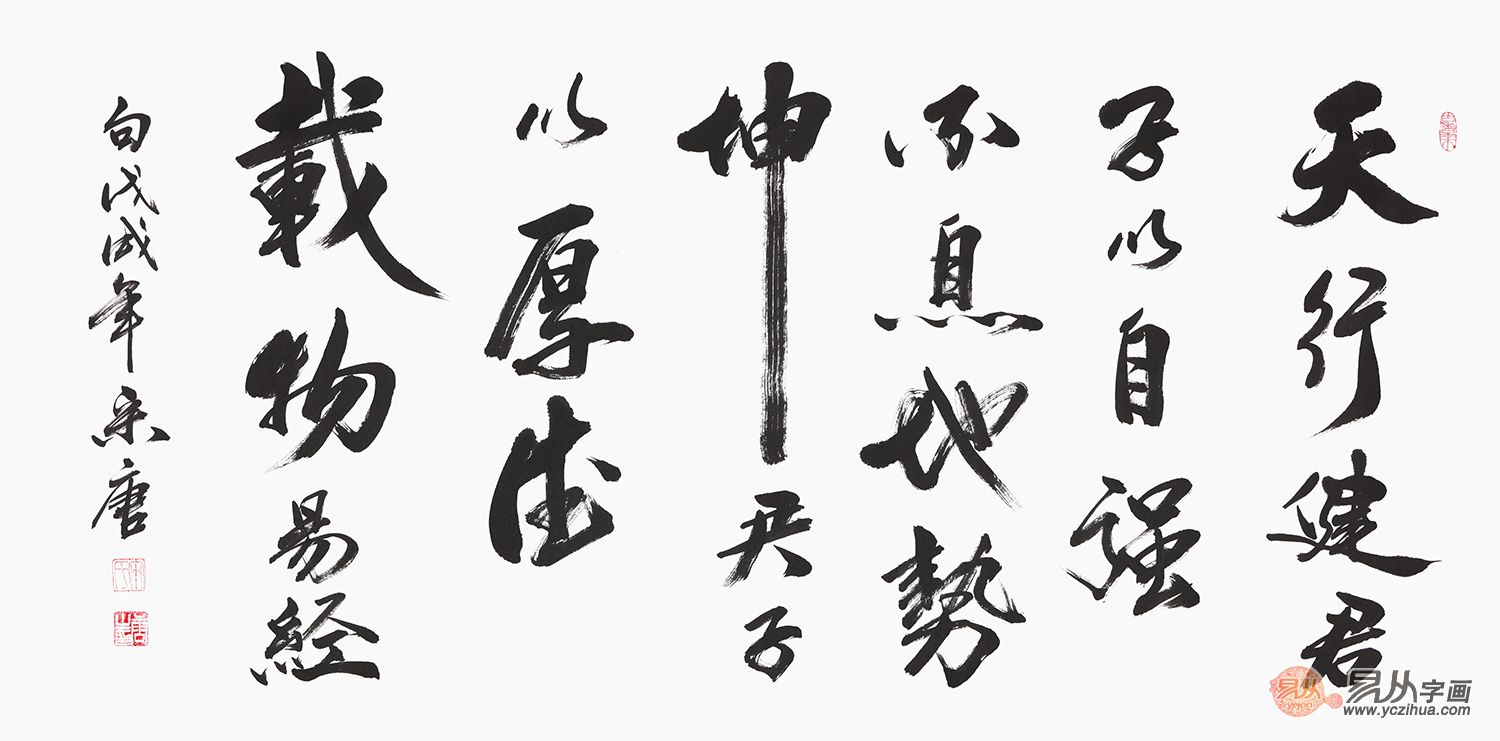 天行健君
子以自强
不息地勢
坤君子
以厚德
載物易经
句戊戌年宋唐
易从字画
www.yczihua.com